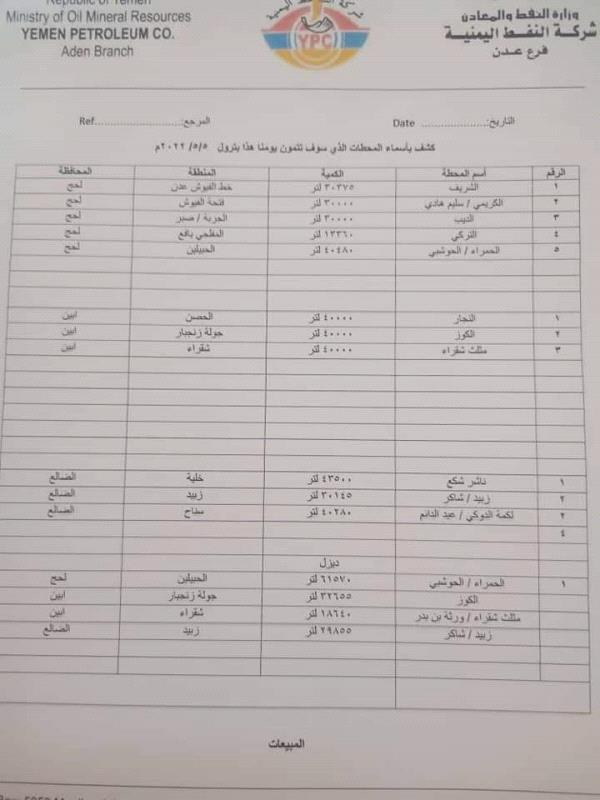 Republic of Yemen
Ministry of Oil Mineral Resources
YEMEN PETROLEUM CO.
Aden Branch
YPC
وزارة النفط والمعادن
شركة النفط اليمنية
فرع عدن
Ref........................المرجع:
Date ......................التاريخ:
كشف بأسماء المحطات الذي سوف تتمون يومنا هذا بترول ٢٠٢٢/٥/٥م
الرقم أسم المحطة الكمية المنطقة المحافظة
١ الشريف ٣٠٣٧٥ لتر خط الفيوش عدن لحج
٢ الكريمي / سليم هادي ٣٠٠٠٠ لتر فتحة الفيوش لحج
٣ الديب ٣٠٠٠٠ لتر الحربة / صبر لحج
٤ التركي ١٣٣٦٠ لتر المفلحي يافع لحج
٥ الحمراء / الحوشبي ٤٠٤٨٠ لتر الحبيلين لحج
١ النجار ٤٠٠٠٠ لتر الحصن ابين
٢ الكوز ٤٠٠٠٠ لتر جولة زنجبار ابين
٣ مثلث شقراء ٤٠٠٠٠ لتر شقراء ابين
١ ناشر شكع ٤٣٥٠٠ لتر خلية الضالع
٢ زبيد / شاكر ٣٠١٤٥ لتر زبيد الضالع
٢ لكمة الدوكي / عبد الدائم ٤٠٢٨٠ لتر سناح الضالع
٤
ديزل
١ الحمراء / الحوشبي ٦١٥٧٠ لتر الحبيلين لحج
الكوز ٣٢٦٥٥ لتر جولة زنجبار ابين
مثلث شقراء / ورثة بن بدر ١٨٦٤٠ لتر شقراء ابين
زبيد / شاكر ٢٩٨٥٥ لتر زبيد الضالع
المبيعات